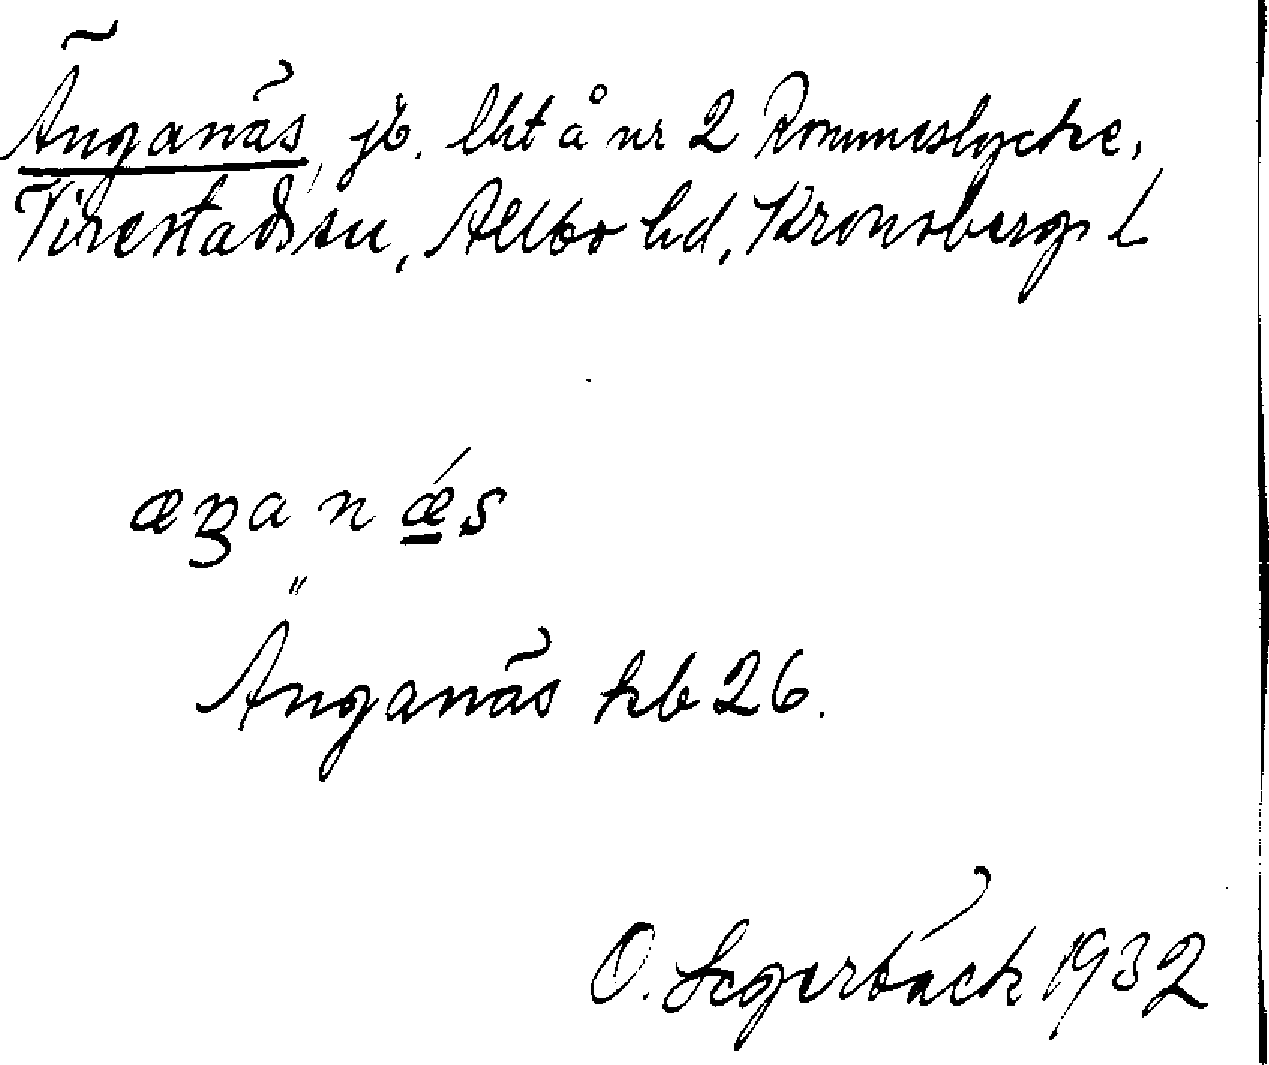 Änganäs, jb. lht å nr 2 Rommeslycke,
Virestads sn, Allbo hd, Kronobergs l
æŋa n ǽs
Änganäs kb 26.
O. Segerbäck 1932